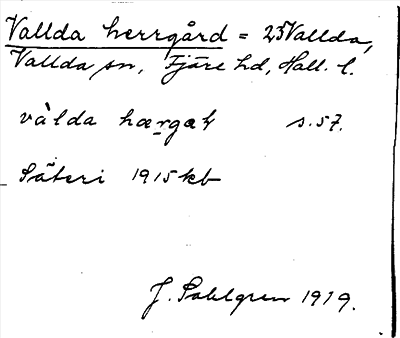 Vallda herrgård = 25 Vallda,
Vallda sn, Fjäre hd, Hall. l.
s. 57.
Säteri 1915 kb
J. Sahlgren 1919.